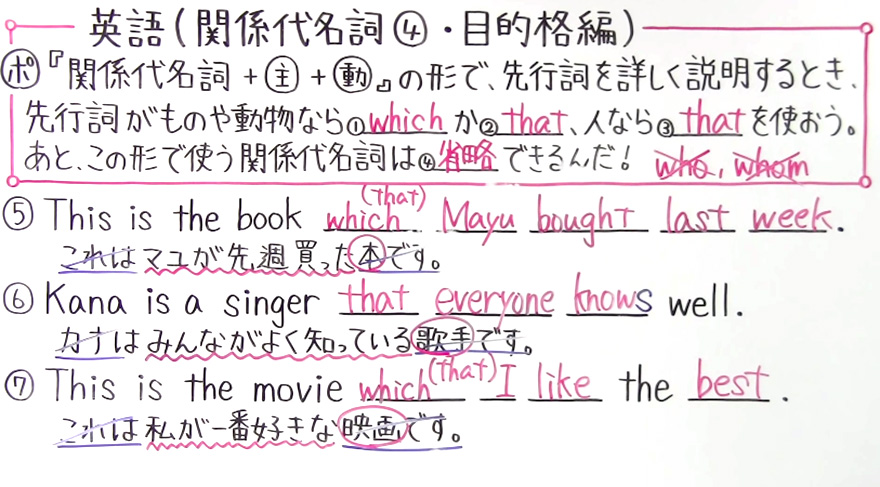 英語(関係代名詞④・目的格編)
ポ『関係代名詞+主+動』の形で、先行詞を詳しく説明するとき、
先行詞がものや動物なら①whichか②that、人なら③thatを使おう。
あと、この形で使う関係代名詞は④省略できるんだ! who, whom
⑤ This is the book which(that) Mayu bought last week.
これはマユが先週買った本です。
⑥ Kana is a singer that everyone knows well.
カナはみんながよく知っている歌手です。
⑦ This is the movie which(that) I like the best.
これは私が一番好きな映画です。